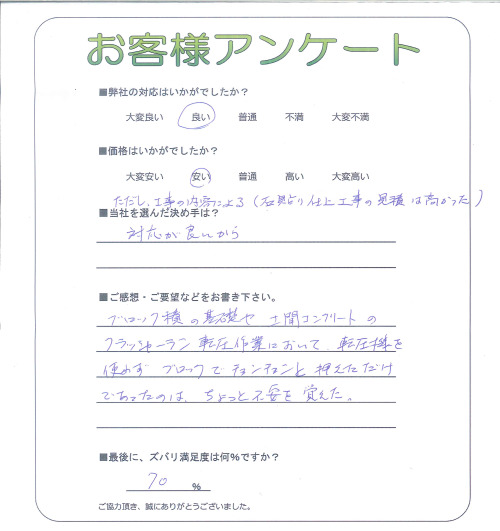 お客様アンケート
■弊社の対応はいかがでしたか？
大変良い 良い 普通 不満 大変不満
■価格はいかがでしたか？
大変安い 安い 普通 高い 大変高い
ただし、工事の内容による（石貼り仕上工事の見積は高かった）
■当社を選んだ決め手は？
対応が良いから
■ご感想・ご要望などをお書き下さい。
ブロック積の基礎や土間コンクリートの
クラッシャーラン転圧作業において、転圧機を
使わず ブロックでチョンチョンと押えただけ
であったのは、ちょっと不安を覚えた。
■最後に、ズバリ満足度は何％ですか？
70 ％
ご協力頂き、誠にありがとうございました。